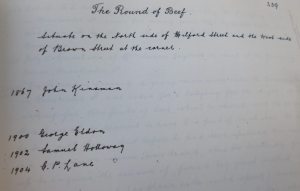 239
The Round of Beef.
Situate on the North side of Milford Street and the West side
of Brown Street at the corner.
1867 John Kinsman
1900 George Eldon
1902 Samuel Holloway
1904 C. P. Lane